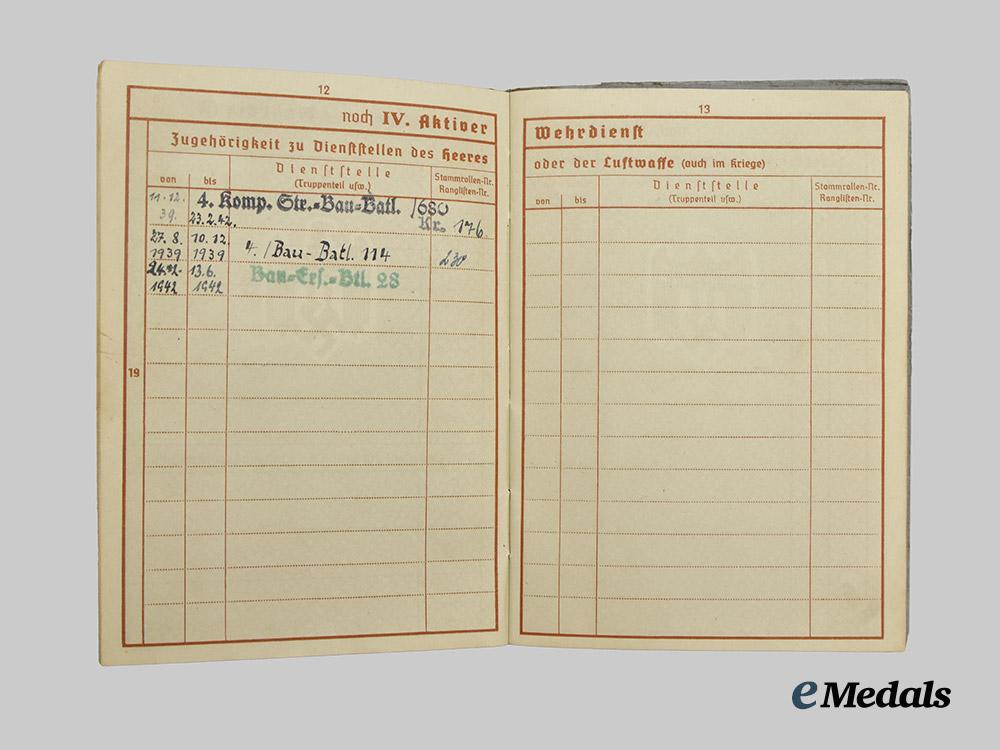 12
noch IV. Aktiver
Zugehörigkeit zu Dienststellen des Heeres
von
bis
Dienststelle
(Truppenteil usw.)
Stammrollen-Nr.
Ranglisten-Nr.
11.12.
39.
23.2.42.
4. Komp. Str.-Bau-Batl. /680
Nr. 176
27.8.
1939
10.12.
1939
4./Bau-Batl. 114
230
1942
13.6.
1942
Bau-Ers.-Btl. 28
19
13
Wehrdienst
oder der Luftwaffe (auch im Kriege)
von
bis
Dienststelle
(Truppenteil usw.)
Stammrollen-Nr.
Ranglisten-Nr.
eMedals